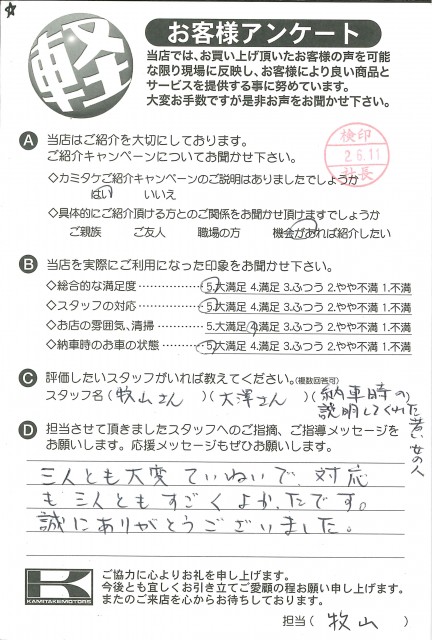 ☆
軽
お客様アンケート
当店では、お買い上げ頂いたお客様の声を可能
な限り現場に反映し、お客様により良い商品と
サービスを提供する事に努めています。
大変お手数ですが是非お声をお聞かせ下さい。
検印
2 6.11
社長
A 当店はご紹介を大切にしております。
ご紹介キャンペーンについてお聞かせ下さい。
◇カミタケご紹介キャンペーンのご説明はありましたでしょうか
はい いいえ
◇具体的にご紹介頂ける方とのご関係をお聞かせ頂けますでしょうか
ご親族 ご友人 職場の方 機会があれば紹介したい
B 当店を実際にご利用になった印象をお聞かせ下さい。
◇総合的な満足度……………5.大満足 4.満足 3.ふつう 2.やや不満 1.不満
◇スタッフの対応……………5.大満足 4.満足 3.ふつう 2.やや不満 1.不満
◇お店の雰囲気、清掃………5.大満足 4.満足 3.ふつう 2.やや不満 1.不満
◇納車時のお車の状態………5.大満足 4.満足 3.ふつう 2.やや不満 1.不満
C 評価したいスタッフがいれば教えてください。(複数回答可)
スタッフ名(牧山さん)(大澤さん)(納車時の
説明してくれた
若い女の人
D 担当させて頂きましたスタッフへのご指摘、ご指導メッセージを
お願いします。応援メッセージもぜひお願いします。
三人とも大変ていねいで、対応
も三人ともすごくよかったです。
誠にありがとうございました。
K
KAMITAKEMOTORS
ご協力に心よりお礼を申し上げます。
今後とも宜しくお引き立てご愛顧の程お願い申し上げます。
またのご来店を心からお待ちしております。
担当(牧山)